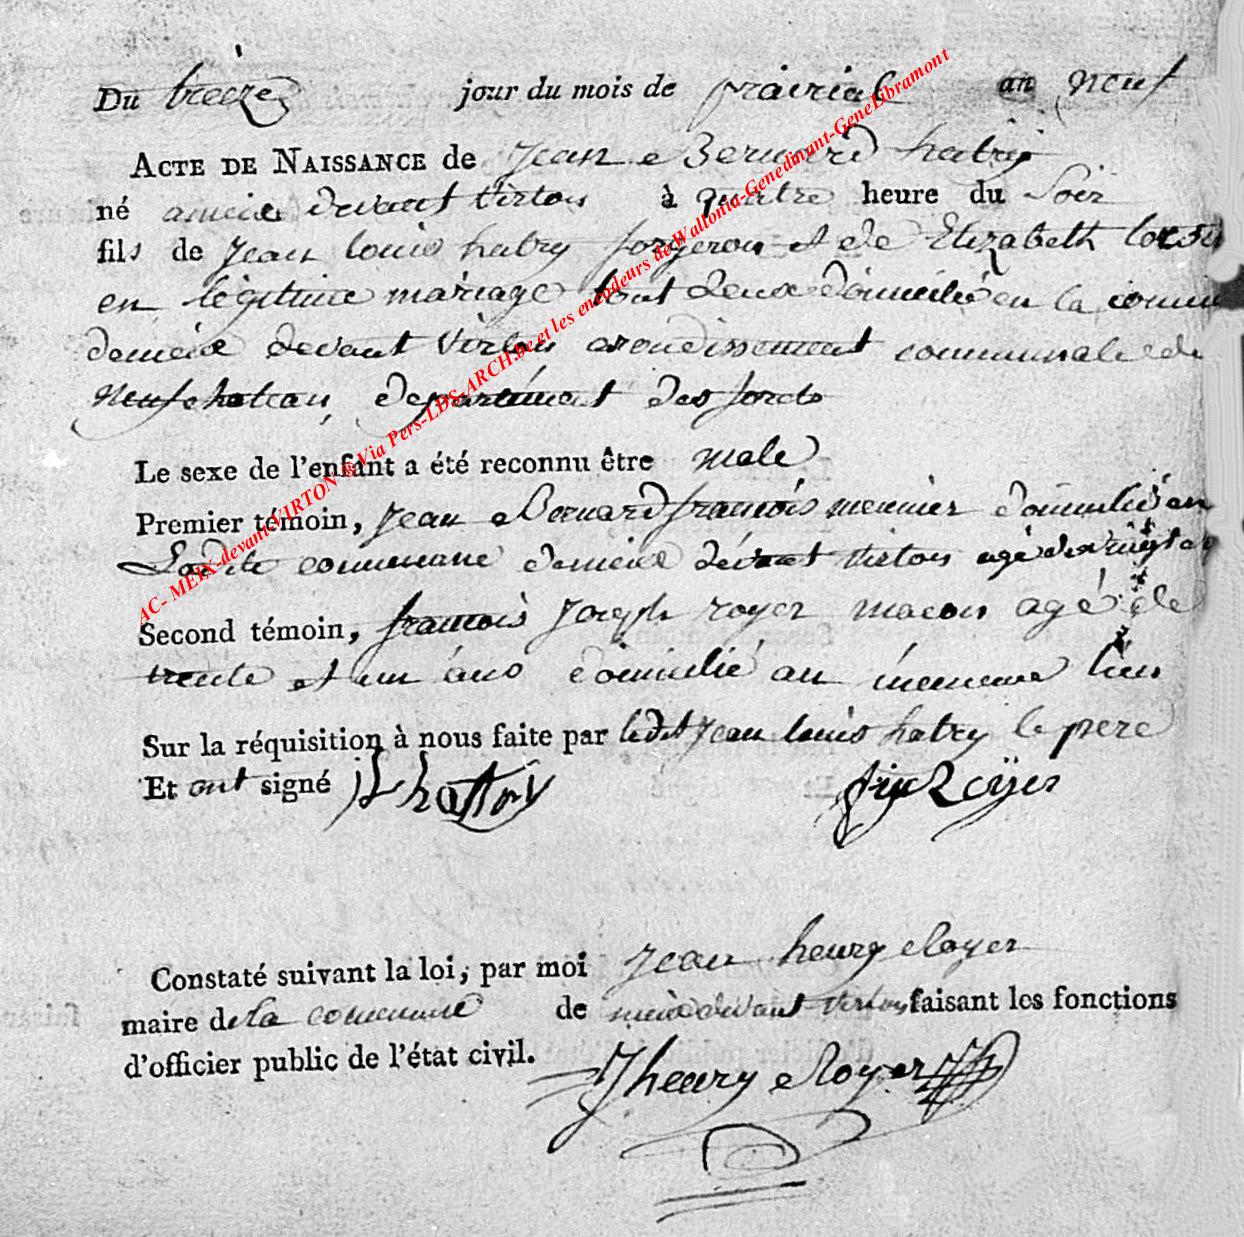 Du treize jour du mois de prairial an neuf
ACTE DE NAISSANCE de Jean Bernard hatry
né a meix devant virton à quatre heure du Soir
fils de Jean louis hatry forgeron et de Elizabeth
en légitime mariage tout deux domicilié en la comm
de meix devant Virton arondissement communale de
Neufchateau, departement des forets
Le sexe de l'enfant a été reconnu être male
Premier témoin, Jean Bernard francois meunier domicilié en
Ladite commune de meix dévant virton agé de
Second témoin, francois Joseph royer macon agé de
trente et un ans domicilié au mememe lieu
Sur la réquisition à nous faite par ledit Jean louis hatry le pere
Et ont signé JL hattry fs Roÿer
Constaté suivant la loi, par moi Jean henry Royer
maire de la commune de meix devant virton faisant les fonctions
d'officier public de l'état civil.
J henry Royer
AC- MEIX-devant-VIRTON © Via Pers-LDS-ARCH.be et les encodeurs de Wallonia-Genedinant-GeneLibramont